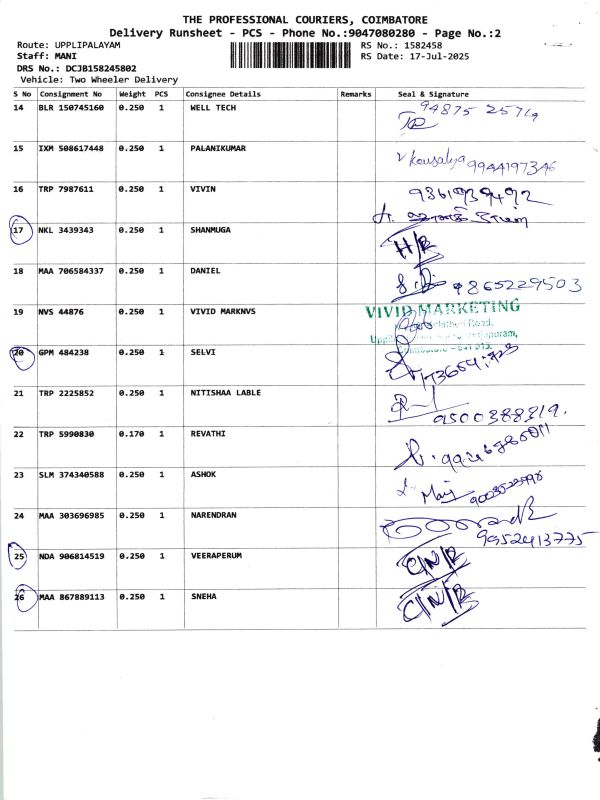 THE PROFESSIONAL COURIERS, COIMBATORE
Delivery Runsheet - PCS - Phone No.:9047080280 - Page No.:2
Route: UPPLIPALAYAM RS No.: 1582458
Staff: MANI RS Date: 17-Jul-2025
DRS No.: DCJB158245802
Vehicle: Two Wheeler Delivery
S No Consignment No Weight PCS Consignee Details Remarks Seal & Signature
14 BLR 150745160 0.250 1 WELL TECH 94875 25714
15 IXM 508617448 0.250 1 PALANIKUMAR V Kousalya 9944197346
16 TRP 7987611 0.250 1 VIVIN
17 NKL 3439343 0.250 1 SHANMUGA H/R
18 MAA 706584337 0.250 1 DANIEL 9865229503
19 NVS 44876 0.250 1 VIVID MARKNVS VIVID MARKETING
Road,
20 GPM 484238 0.250 1 SELVI
21 TRP 2225852 0.250 1 NITISHAA LABLE 9500388319.
22 TRP 5990830 0.170 1 REVATHI
23 SLM 374340588 0.250 1 ASHOK
24 MAA 303696985 0.250 1 NARENDRAN 9952413775
25 NDA 906814519 0.250 1 VEERAPERUM C/N/R
26 MAA 867889113 0.250 1 SNEHA C/N/R